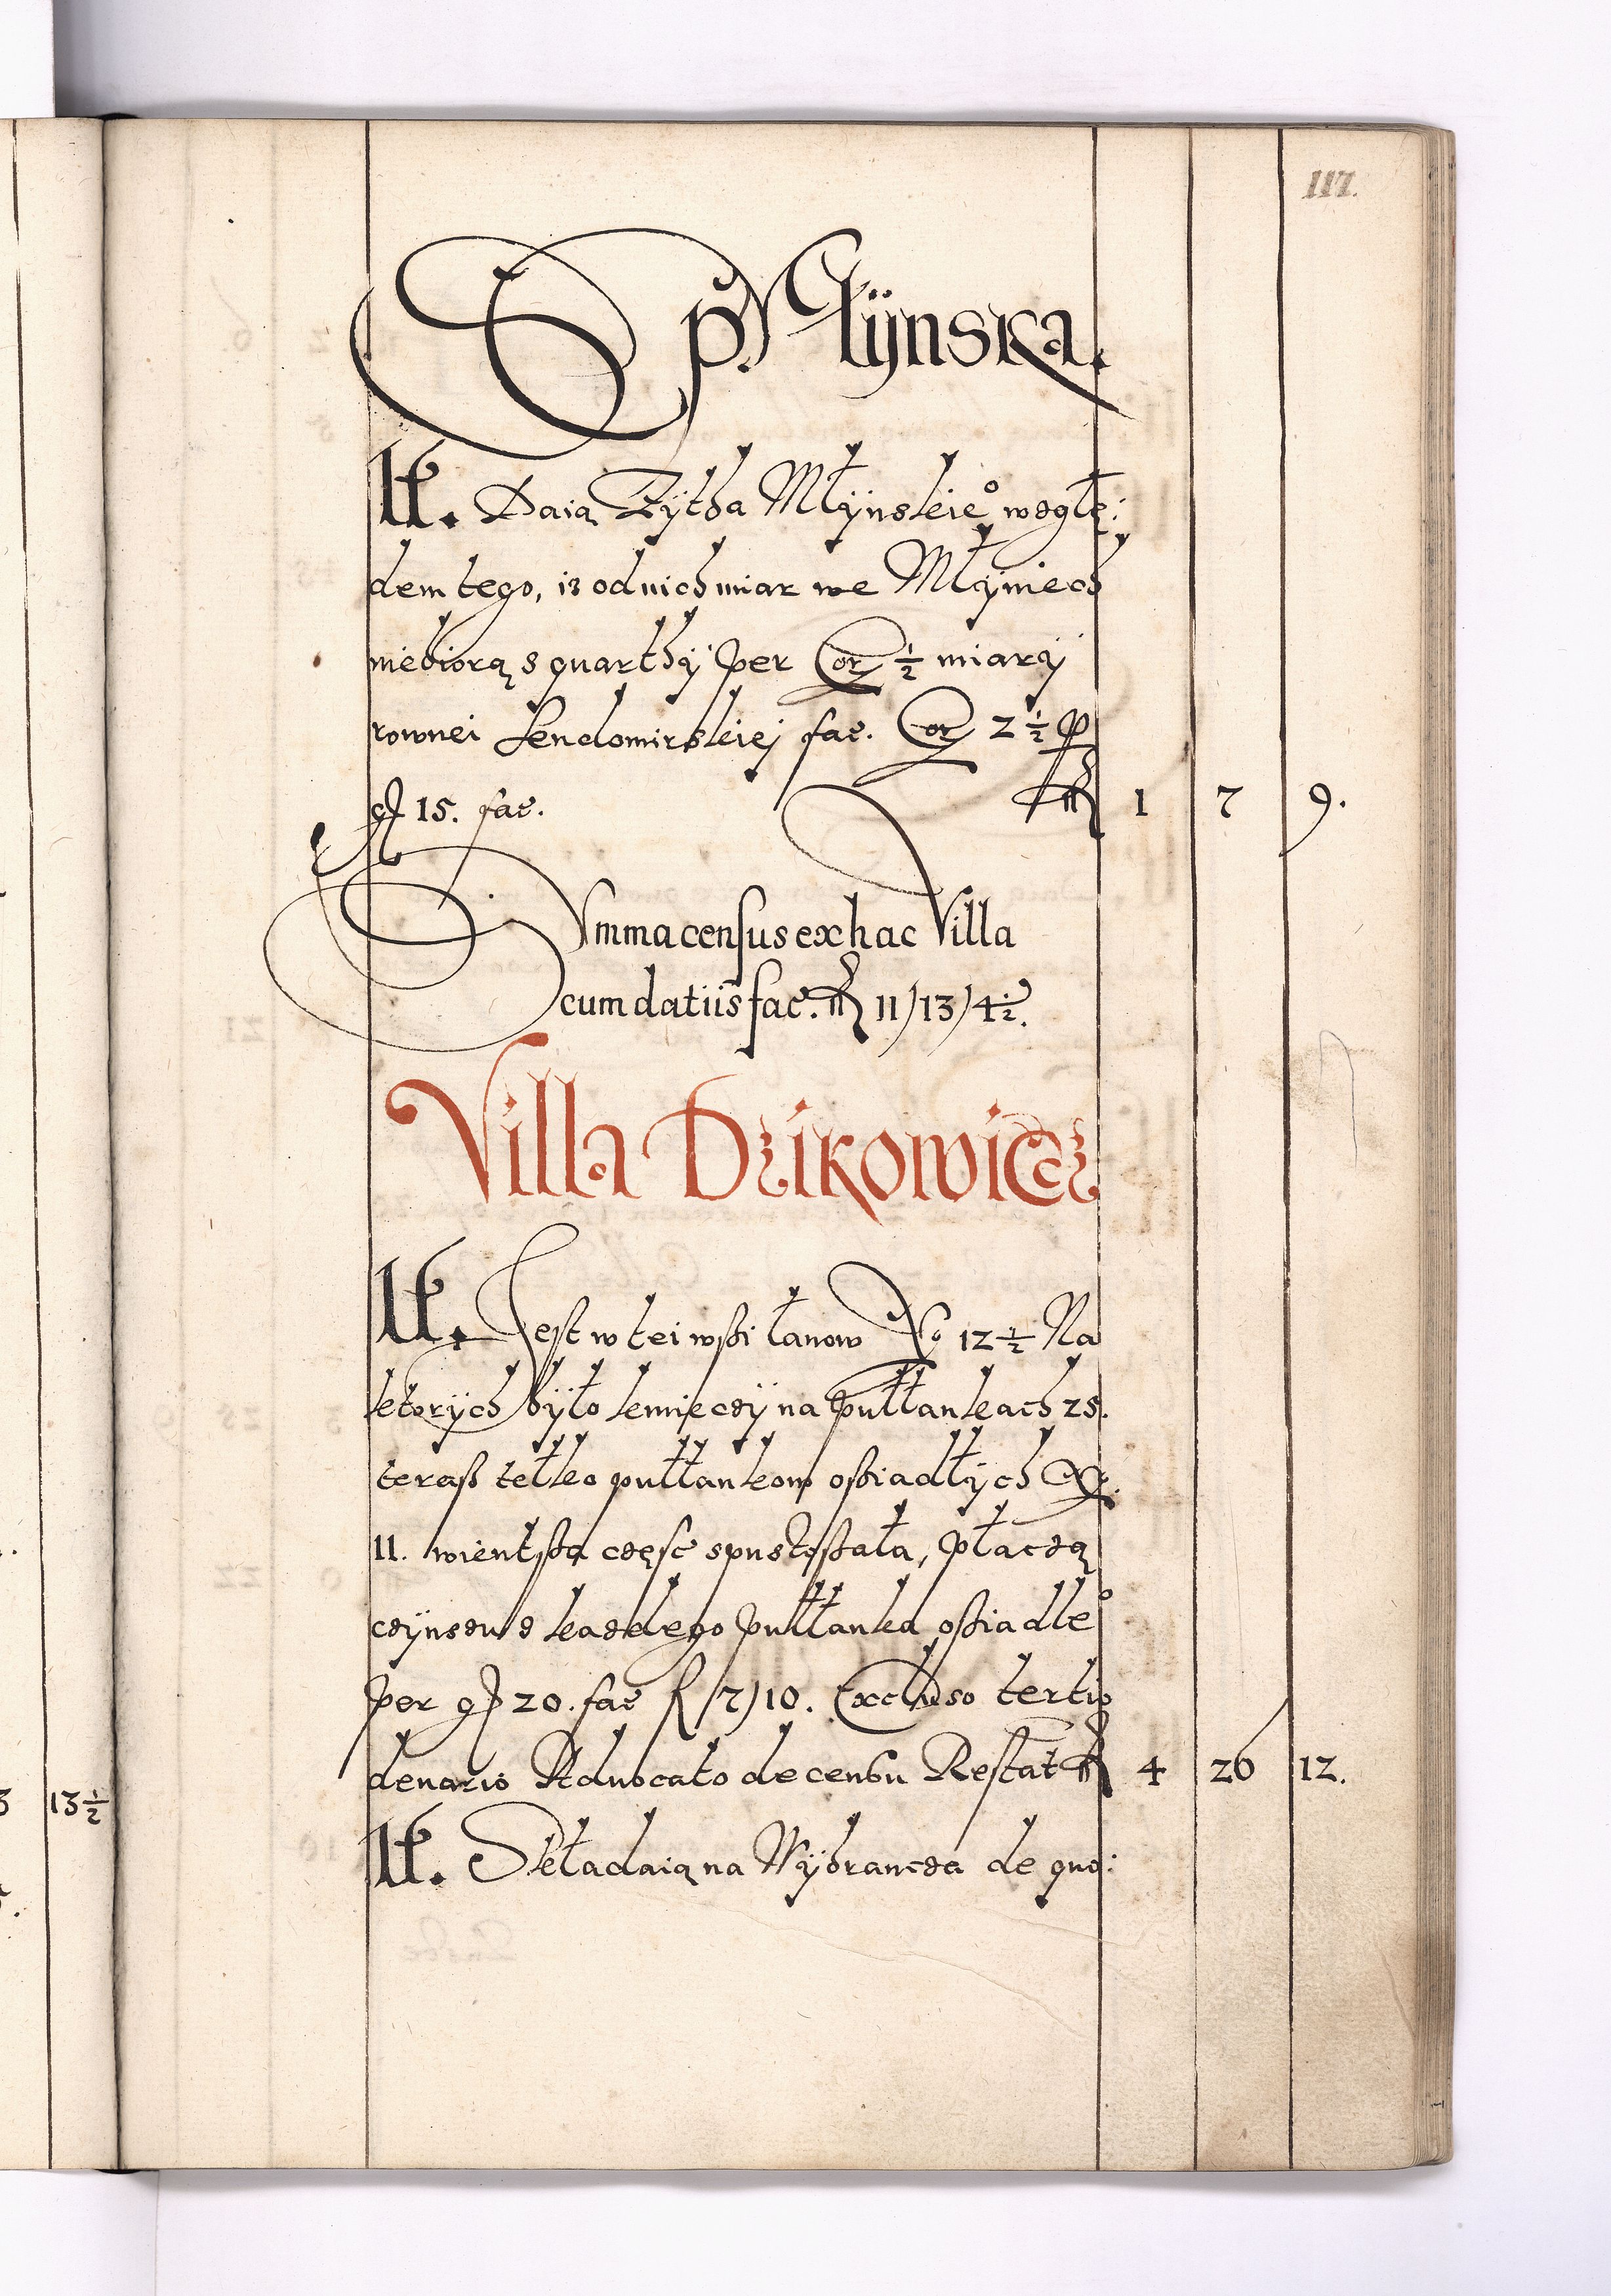 117.
Sp. Młÿnska.
It. Daią Zÿtha Młÿnskie° wzglę:
dem tego, iz od nich miar we Młÿniech
niebiorą s quarthÿ per Cor ½ miarÿ
rownei Sendomirskiej fac. Cor 2½ p
gr 15. fac. 1 7 9.
Summa census ex hac Villa
cum datiis fac. 11/13/4½.
Villa Dzikowiecz
It. Jest w tei wsßi łanow No 12½ Na
ktorÿch bÿło kmieczÿ na pułłankach 25.
teraß telko pułłankow oßiadłÿch
11. wientßa częsc spustoßała, płaczą
czÿnszu z kazdego pułłanka oßiadle°
per gr 20. fac f 7/10. Excluso tertio
denario Advocato de censu Restat 4 26 12.
It. Składaią na Wÿbrancza de quo:
13½